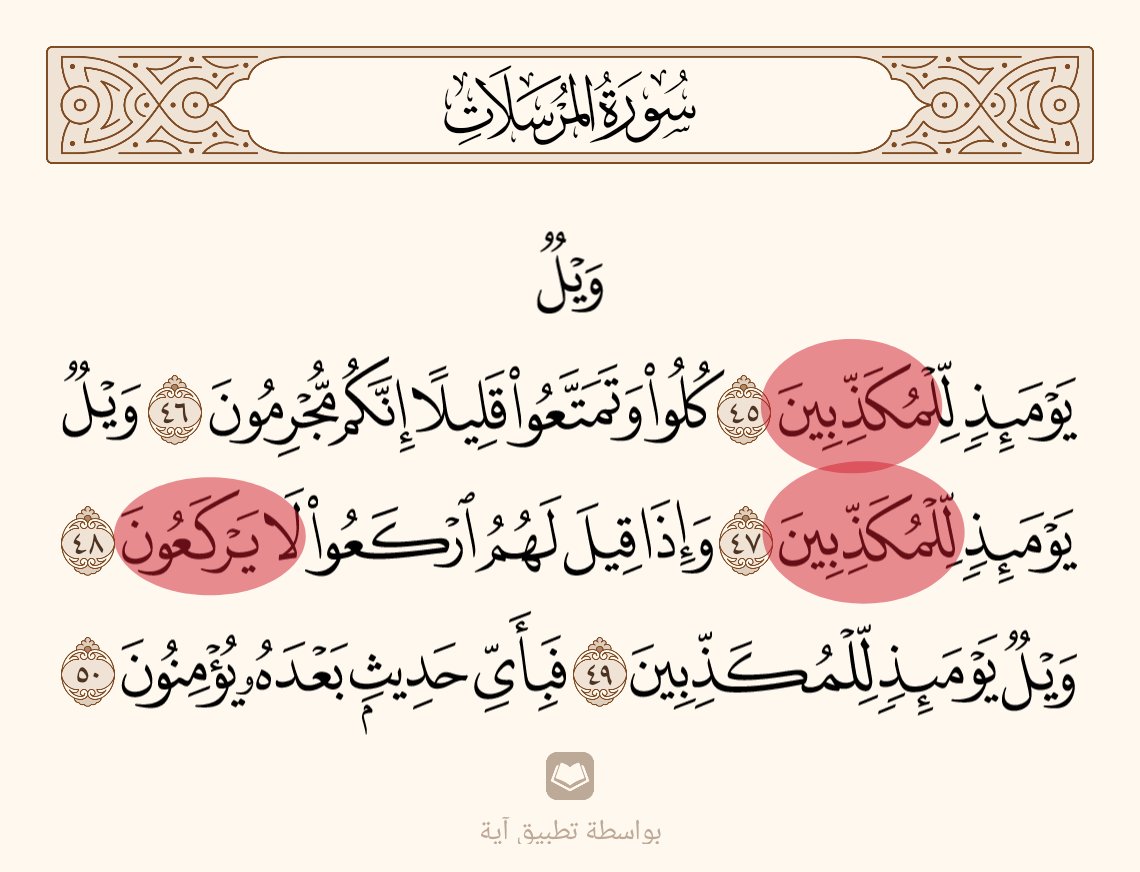 سُورَةُ المُرْسَلَاتِ
وَيْلٌ
يَوْمَئِذٍ لِّلْمُكَذِّبِينَ ٤٥ كُلُوا۟ وَتَمَتَّعُوا۟ قَلِيلًا إِنَّكُم مُّجْرِمُونَ ٤٦ وَيْلٌ
يَوْمَئِذٍ لِّلْمُكَذِّبِينَ ٤٧ وَإِذَا قِيلَ لَهُمُ ٱرْكَعُوا۟ لَا يَرْكَعُونَ ٤٨
وَيْلٌ يَوْمَئِذٍ لِّلْمُكَذِّبِينَ ٤٩ فَبِأَىِّ حَدِيثٍۭ بَعْدَهُۥ يُؤْمِنُونَ ٥٠
بواسطة تطبيق آية